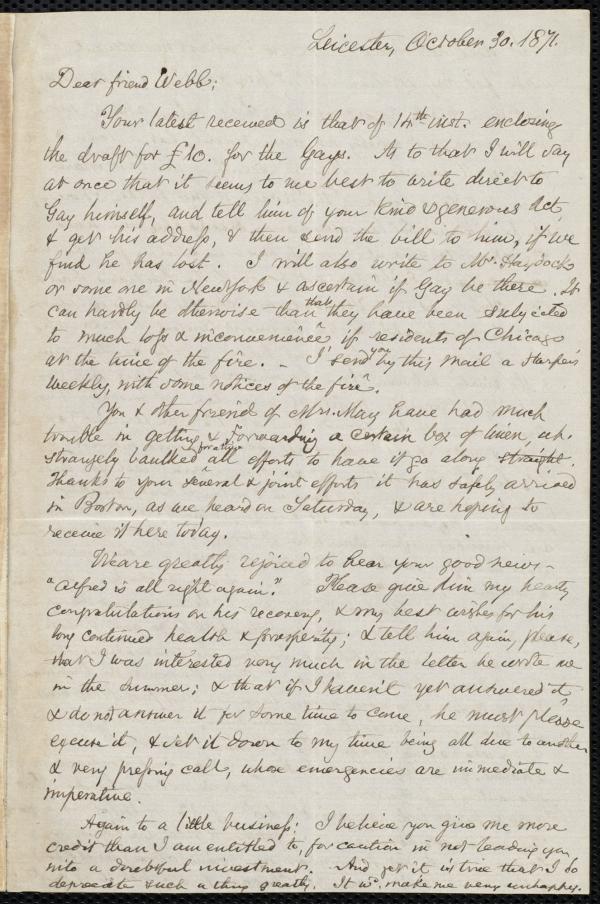 Leicester, October 30. 1871.
Dear friend Webb;
Your latest received is that of 14th inst. enclosing
the draft for £10. for the Gays. As to that I will say
at once that it seems to me best to write direct to
Gay himself, and tell him of your kind & generous act,
& get his address, & then send the bill to him, if we
find he has lost. I will also write to Mr. Haydock
or some one in New York & ascertain if Gay be there. It
can hardly be otherwise than that they have been subjected
to much loss & inconvenience if residents of Chicago
at the time of the fire. – I send you by this mail a Harper's
Weekly, with some notices of the fire.
You & other friends of Mrs. May have had much
trouble in getting & forwarding a certain box of linen, wh.
strangely baulked for a time all efforts to have it go along straight.
Thanks to your several & joint efforts it has safely arrived
in Boston, as we heard on Saturday, & are hoping to
receive it here today.
We are greatly rejoiced to hear your good news –
"Alfred is all right again". Please give him my hearty
congratulations on his recovery, & my best wishes for his
long continued health & prosperity; & tell him again, please,
that I was interested very much in the letter he wrote me
in the summer; & that if I haven't yet answered it
& do not answer it for some time to come, he must please
excuse it, & set it down to my time being all due to another
& very pressing call, whose emergencies are immediate &
imperative.
Again to a little business: I believe you give me more
credit than I am entitled to, for caution in not leading you
into a doubtful investment. And yet it is true that I do
deprecate such a thing greatly. It wd. make me very unhappy.